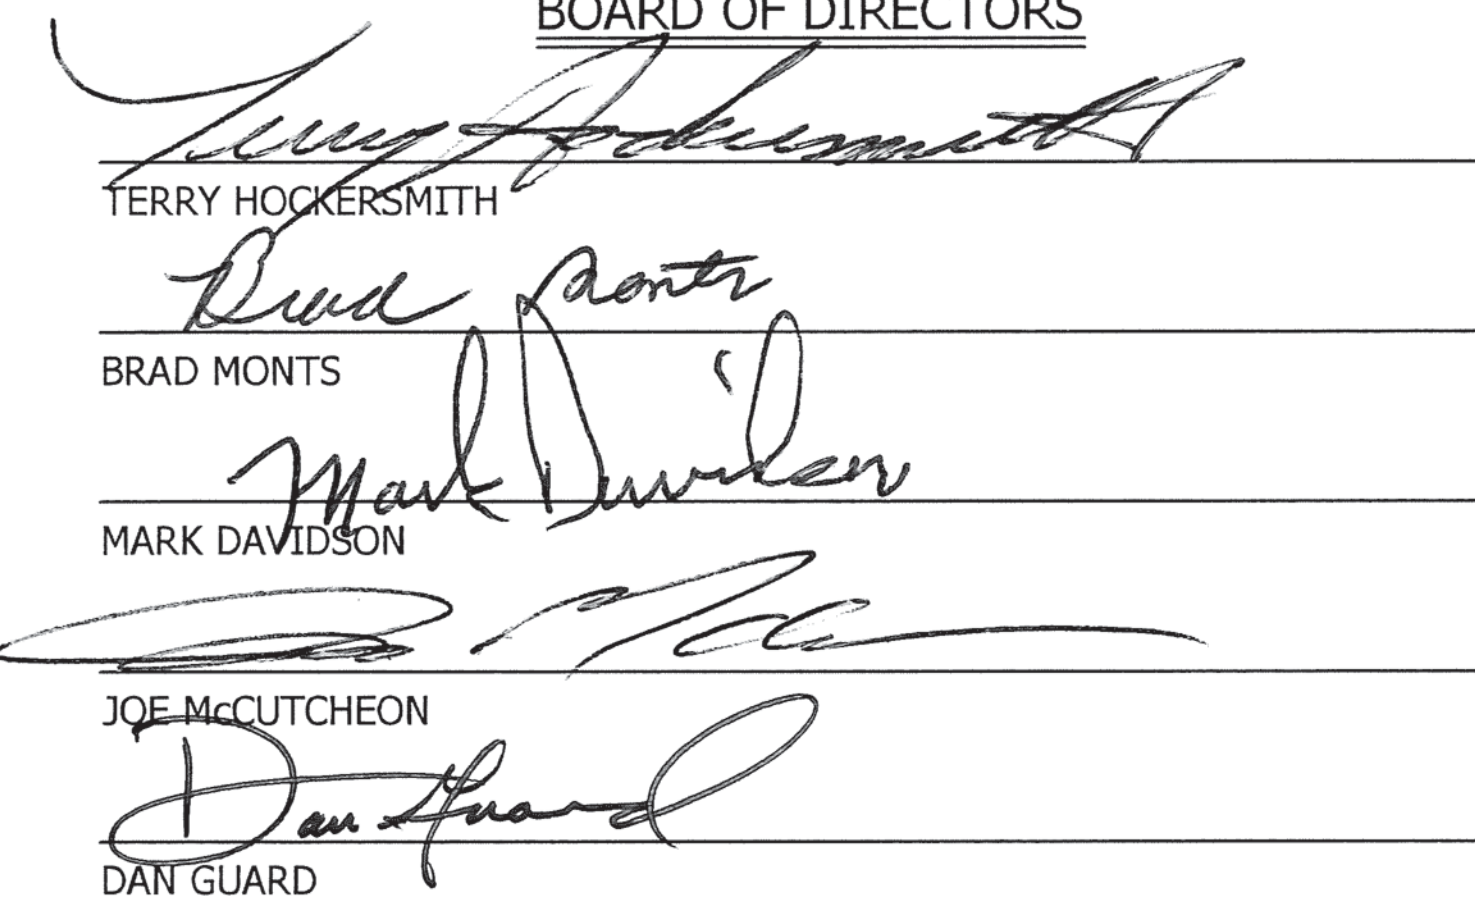 BOARD OF DIRECTORS
Terry Hockersmith
TERRY HOCKERSMITH
Brad Monts
BRAD MONTS
Mark Davidson
MARK DAVIDSON
JOE McCUTCHEON
Dan Guard
DAN GUARD